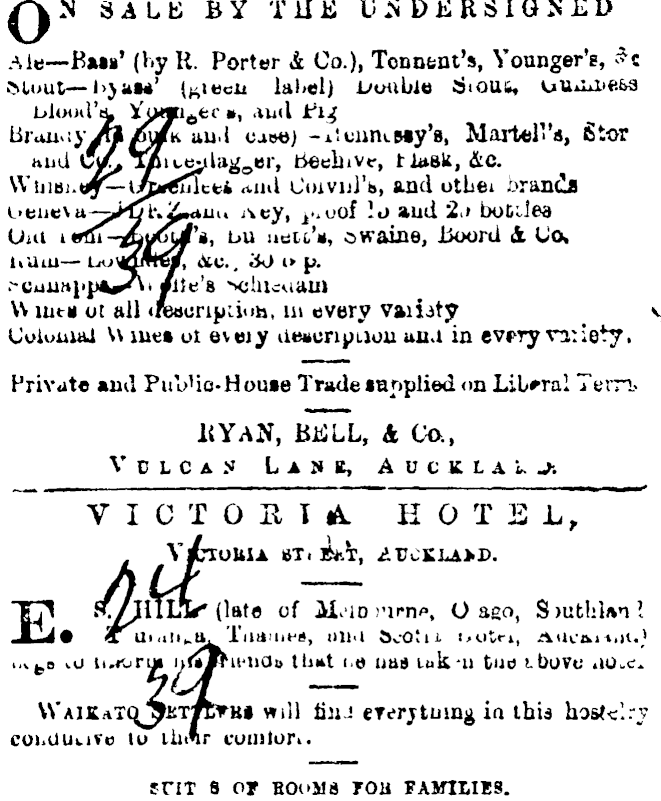 ON SALE BY THE UNDERSIGNED
Ale—Bass' (by R. Porter & Co.), Tennent's, Younger's, &c
Stout—Byass' (green label) Double Stout, Guinness
Blood's, Younger's, and Pig
Brandy (in bulk and case)—Hennessy's, Martell's, Stor
and Co., Three-dagger, Beehive, Flask, &c.
Whiskey—Greenlees and Colvill's, and other brands
Geneva—JDKZ and Key, proof 15 and 20 bottles
Old Tom—Booth's, Burnett's, Swaine, Boord & Co.
Rum—Lowndes, &c., 30 o p.
Schnapps—Wolfe's Schiedam
Wines of all description, in every variety
Colonial Wines of every description and in every variety.
Private and Public-House Trade supplied on Liberal Terms
RYAN, BELL, & Co.,
VULCAN LANE, AUCKLAND.
VICTORIA HOTEL,
VICTORIA STREET, AUCKLAND.
E. S. HILL (late of Melbourne, Otago, Southland
Thames, and Scotia Hotel, Auckland,)
begs to inform his friends that he has taken the above hotel
WAIKATO SETTLERS will find everything in this hostelry
conducive to their comfort.
SUITES OF ROOMS FOR FAMILIES.
29
39
24
39